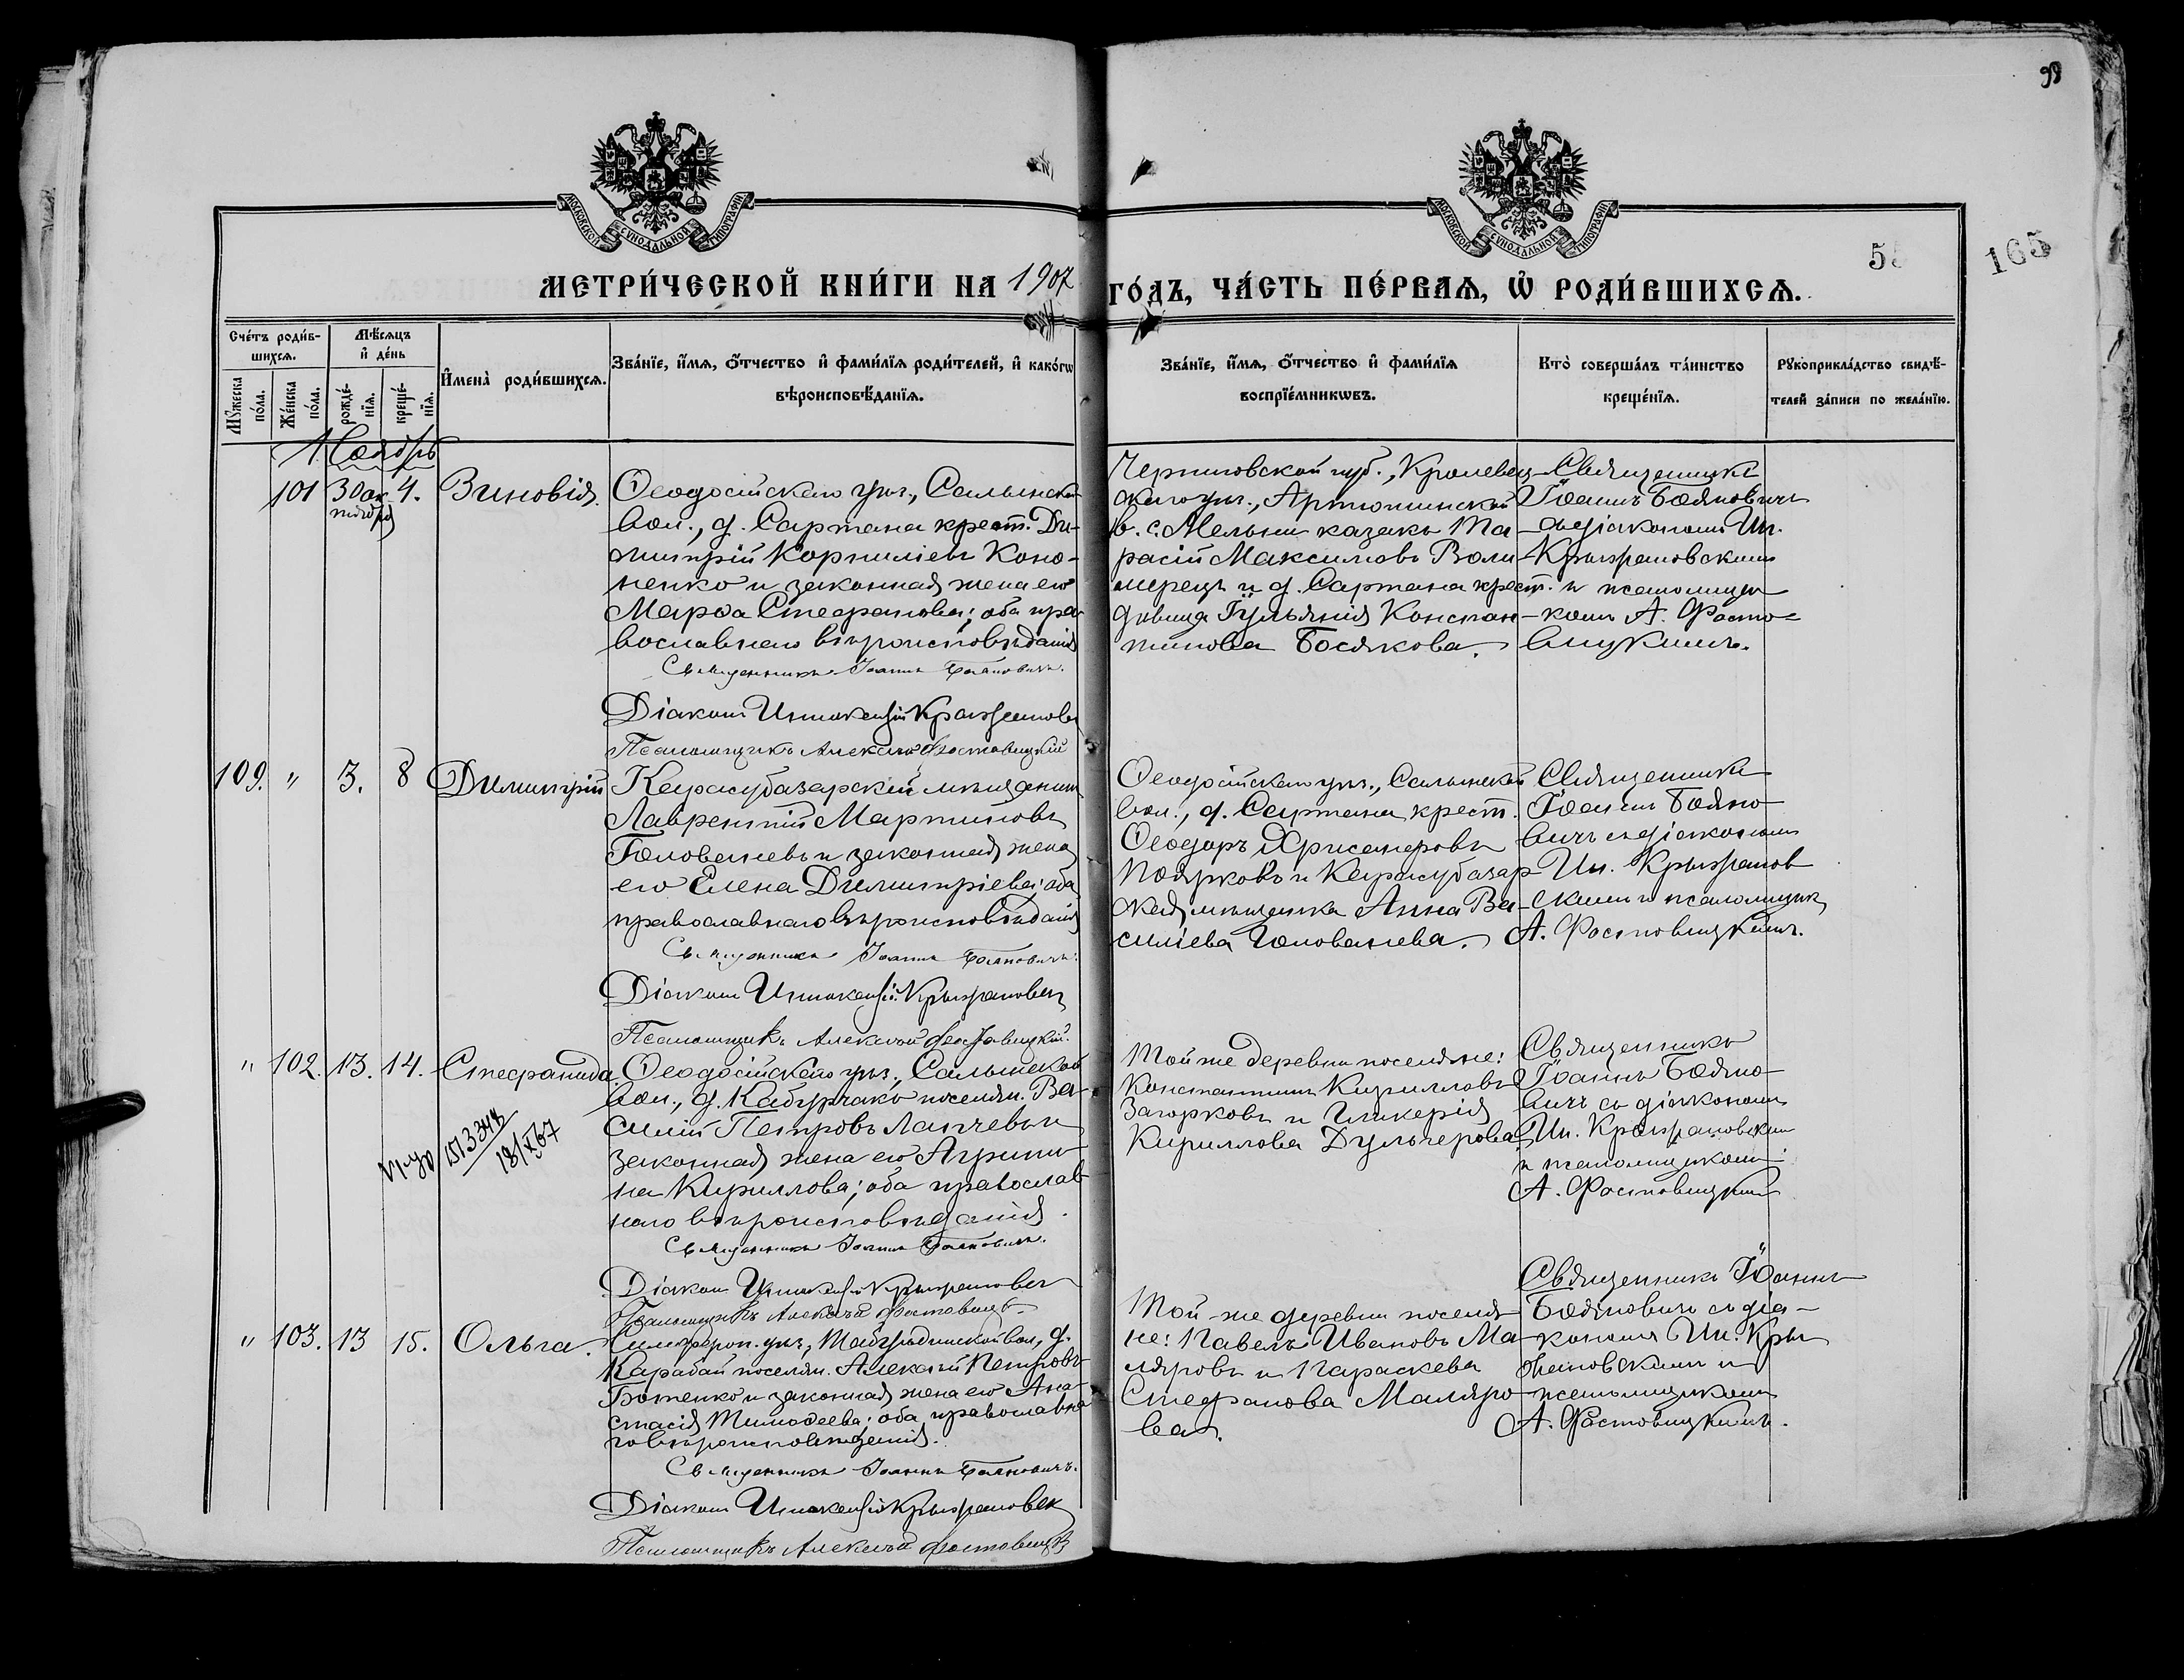 98
МОСКОВСКОЙ СѴНОДАЛЬНОЙ ТИПОГРАФІИ
МОСКОВСКОЙ СѴНОДАЛЬНОЙ ТИПОГРАФІИ
165
МЕТРИ́ЧЕСКОЙ КНИ́ГИ НА 1907 ГО́ДЪ, ЧА́СТЬ ПЕ́РВАѦ, Ѽ РОДИ́ВШИХСѦ.
Сче́тъ роди́в-
шихсѧ.
Мѣ́сѧцъ
и҆ де́нь
Мꙋ́жеска
по́ла.
Же́нска
по́ла.
рожде́-
нїѧ.
креще́-
нїѧ.
И҆мена̀ роди́вшихсѧ.
Зва́нїе, и҆́мѧ, ѻ҆́тчество и҆ фами́лїѧ роди́телей, и҆ како́гѡ
вѣроисповѣ́данїѧ.
Зва́нїе, и҆́мѧ, ѻ҆́тчество и҆ фами́лїѧ
воспрїе́мникѡвъ.
Кто̀ соверша́лъ та́инство
креще́нїѧ.
Рꙋкоприкла́дство свидѣ́-
телей за́писи по жела́нїю.
Ноябрь
101 30 ок-
тября
4.
Зиновія.
Ѳеодосійскаго уѣз., Салынской
вол., д. Сартана крест. Ди-
митрій Корниліевъ Коно-
ненко и законная жена его
Марѳа Стефанова; оба пра-
вославнаго вѣроисповѣданія
Священникъ Іоаннъ Бояновичъ.
Діаконъ Иннокентій Крыжановск
Псаломщикъ Алексѣй Фостовицкій
Черниговской губ., Кролевец-
скаго уѣз., Артюшинской
в. с. Мельни казакъ Та-
расій Максимовъ Воли-
мерецъ и д. Сартана крест.
дѣвица Іуліанія Констан-
тинова Босякова.
Священникъ
Іоаннъ Бояновичъ
съ діакономъ Ин.
Крыжановскимъ
и псаломщи-
комъ А. Фосто-
вицкимъ.
109. " 3. 8 Димитрій
Карасубазарскій мѣщанинъ
Лаврентій Мартиновъ
Головачевъ и законная жена
его Елена Димитріева; оба
православнаго вѣроисповѣданія
Священникъ Іоаннъ Бояновичъ.
Діаконъ Иннокентій Крыжановск
Псаломщикъ Алексѣй Фостовицкій.
Ѳеодосійскаго уѣз., Салынской
вол., д. Сартана крест.
Ѳеодоръ Хрисанѳовъ
Поярковъ и Карасубазар-
ская мѣщанка Анна Ва-
силіева Головачева.
Священникъ
Іоаннъ Бояно-
вичъ съ діакономъ
Ин. Крыжанов-
скимъ и псаломщик.
А. Фостовицкимъ.
" 102. 13. 14. Стефанида.
Ѳеодосійскаго уѣз., Салынской
вол., д. Кабурчакъ поселян. Ва-
силій Петровъ Лапчевъ и
законная жена его Агрипи-
на Кириллова; оба православ-
наго вѣроисповѣданія.
Священникъ Іоаннъ Бояновичъ.
Діаконъ Иннокентій Крыжановск
Псаломщикъ Алексѣй Фостовицк
Той же деревни поселяне:
Константинъ Кирилловъ
Загорковъ и Гликерія
Кириллова Дульгерова
Священникъ
Іоаннъ Бояно-
вичъ съ діакономъ
Ин. Крыжановским
и псаломщикомъ
А. Фостовицким
" 103. 13 15. Ольга.
Симфероп. уѣз., Табулдинской вол., д.
Карабай поселян. Алексѣй Петровъ
Боженко и законная жена его Ана-
стасія Тимоѳеева; оба православна-
го вѣроисповѣданія.
Священникъ Іоаннъ Бояновичъ.
Діаконъ Иннокентій Крыжановск
Псаломщикъ Алексѣй Фостовицк
Той-же деревни поселя-
не: Павелъ Ивановъ Ма-
ляровъ и Параскева
Стефанова Маляро-
ва.
Священникъ Іоаннъ
Бояновичъ съ діа-
кономъ Ин. Кры-
жановскимъ и
псаломщикомъ
А. Фостовицкимъ.